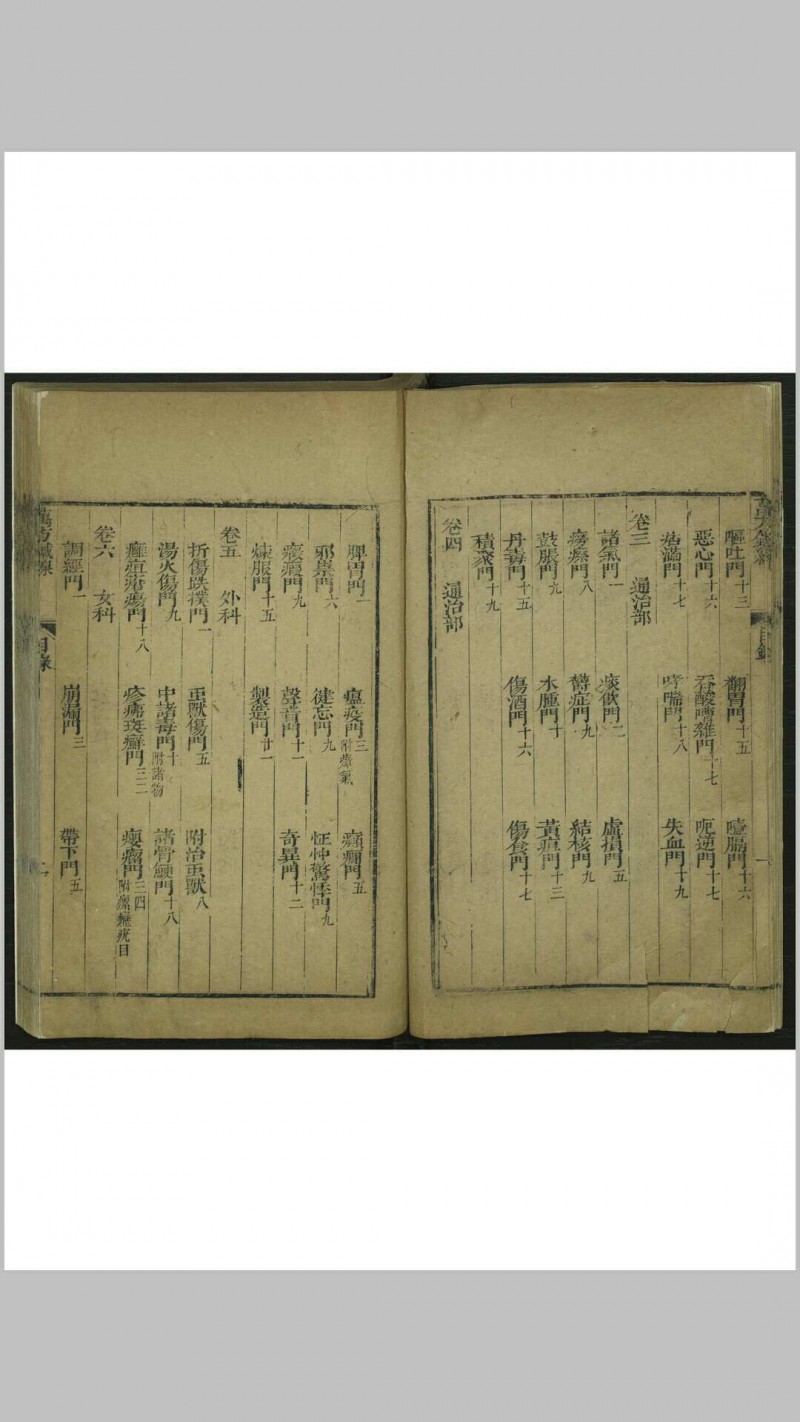 嘔吐門十三 翻胃門十五 噎膈門十六
惡心門十六 吞酸嘈雜門十七 呃逆門十七
痞滿門十七 哮喘門十八 失血門十九
卷三 通治部
諸氣門一 痰飲門二 虛損門五
癆瘵門八 鬱症門九 結核門九
鼓脹門九 水腫門十 黃疸門十三
丹毒門十五 傷酒門十六 傷食門十七
積聚門十九
卷四 通治部
脾胃門一 瘟疫門三附瘴氣 癲癇門五
邪祟門六 健忘門九 怔忡驚悸門九
痰瘧門九 聲音門十一 奇異門十二
煉服門十五 製造門廿一
卷五 外科
折傷跌撲門一 虫獸傷門五 附治虫獸八
湯火傷門九 中諸毒門十附諸物 諸骨鯁門十八
癰疽瘡瘍門十八 疹痛斑癬門三二 癭瘤門三四附瘰癧疣目
卷六 女科
調經門一 崩漏門三 帶下門五
萬方鍼線 目錄 二